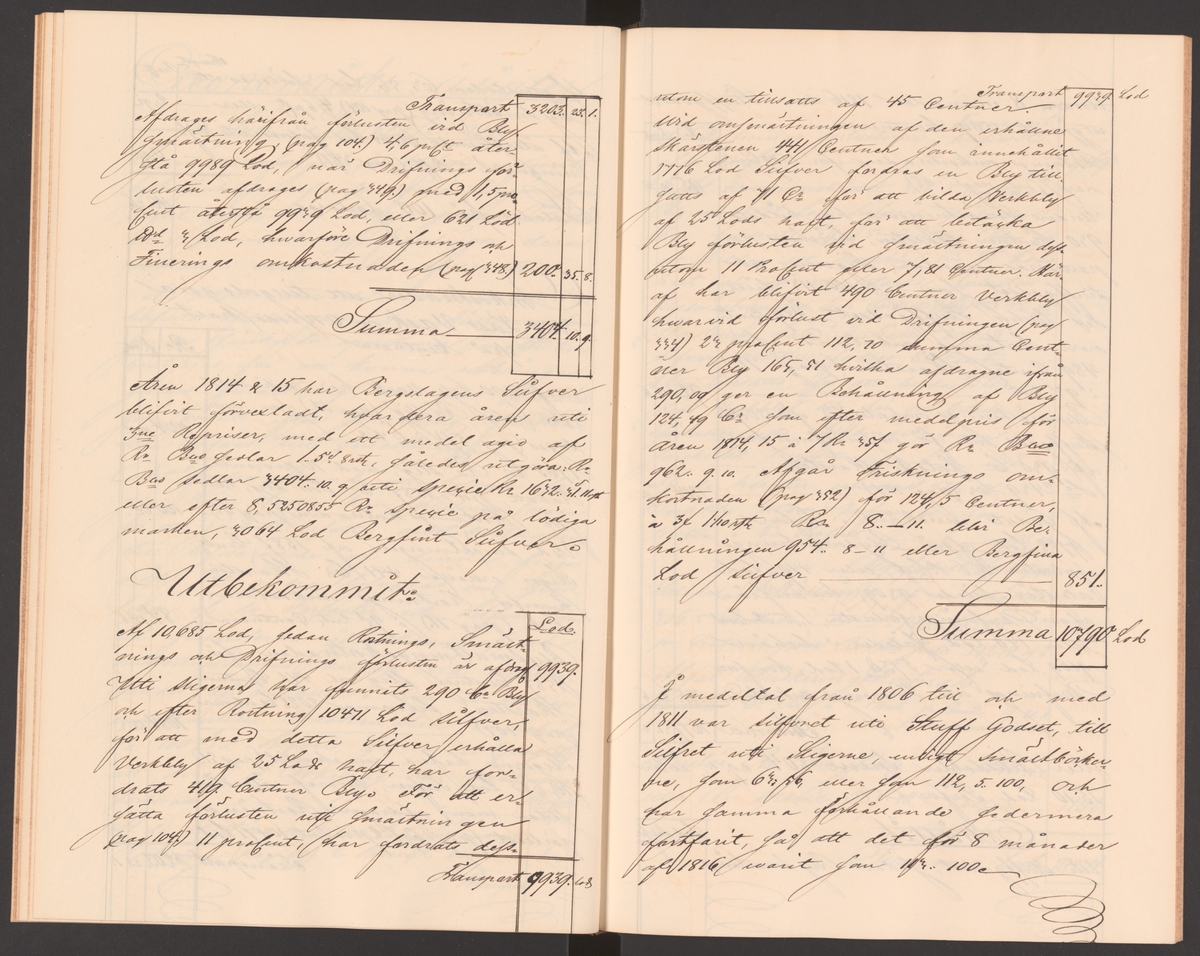 Transport 3203. 23. 1.
Afdrages härifrån förlusten vid Bly
smältning (pag 104.) 4,6 proCt åter
stå 9989 Lod, när Drifnings för-
lusten afdrages (pag 349.) med 1,5 pro
Cent återstå 9939 Lod, eller 621 Löd
Lod, hwarföre Drifnings och
Finerings omkostnaden (pag 348.) 200. 35. 8.
Summa 3404. 10. 9.
Åren 1814 & 15 har Bergslagens Silfver
blifvit förvexladt, hvardera åren uti
3ne Repriser, med ett medel agio af
Rr Bco sedlar 1. således utgöra Rr
Bco sedlar 3404. 10. 9 uti specie Rr 1632.
eller efter 8,5250855 Rr specie på lödiga
marken, 3064 Lod Bergfint Silfver.
Utbekommit:
Lod.
Af 10,685 Lod, sedan Rostnings, Smält-
nings och Drifnings förlusten är afdrag 9939.
Uti sligerna har funnits 290 Cr Bly
och efter Rostning 10471 Lod silfver,
för att med detta Silfver erhålla
Verkbly af 25 Lods halt, har for-
drats 419 Centner Bly. För att er-
sätta förlusten uti smältningen
(pag 104.) 11 procent, har fordrats dess-
Transport 9939. Lod
Transport 9939. Lod
utom en tillsatts af 45 Centner
Vid omsmältningen af den erhållne
Skärstenen 441 Centner som innehållit
1776 Lod Silfver fordras en Bly till
satts af 71 Cr för att bilda Verkbly
af 25 Lods halt, för att betäcka
Bly förlusten vid smältningen dess
utom 11 Procent eller 7,81 Centner. Här-
af har blifvit 490 Centner Verkbly
hwarvid förlust vid Drifningen (pag
334) 23 procent 112,70 summa Cent-
ner Bly 165,51 hvilka afdragne ifrån
290,00 ger en Behållning af Bly
124,49 Cr som efter medelpris för
åren 1814, 15 à 7 Rr 35 f gör Rr Bco
962. 9. 10. Afgår Frisknings om-
kostnaden (pag 352) för 124,5 Centner,
à 3 f Rr 8.—11. blir Be-
hållningen 954. 8–11 eller Bergfina
Lod silfver 851.
Summa 10790 Lod
I medeltal från 1806 till och med
1811 var silfvret uti Stuff Godset, till
Silfret uti Sligerne, enligt Smältböcker-
ne, som 63,56 eller som 112,5. 100, och
har samma förhållande sedermera
fortfarit, så, att det för 8 månader
af 1816 warit som 113. 100.